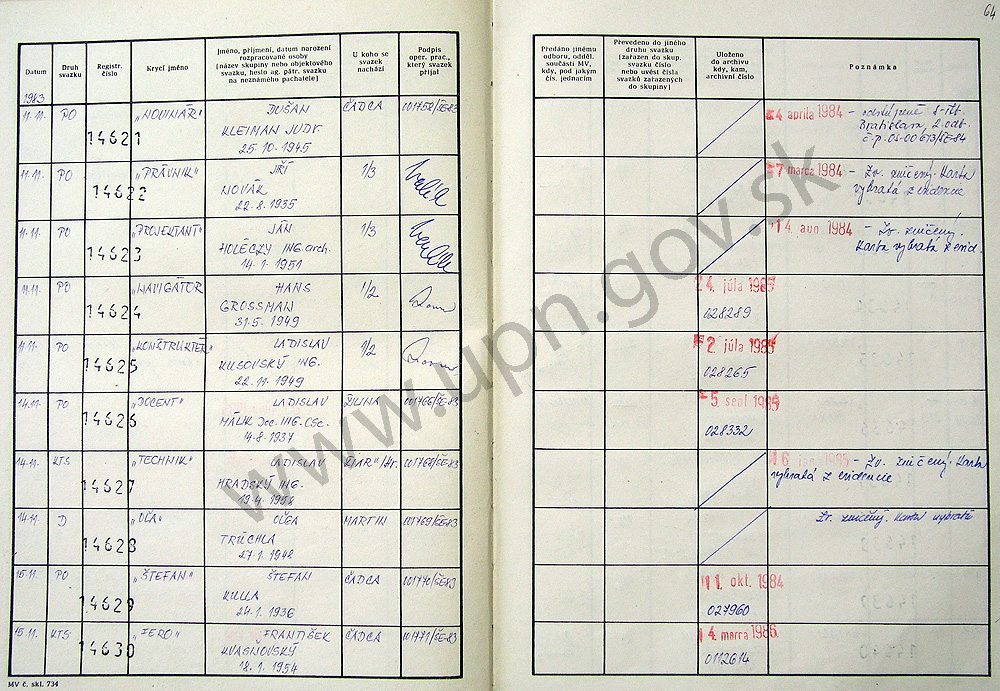 64
Datum
Druh svazku
Registr. číslo
Krycí jméno
Jméno, příjmení, datum narození
rozpracované osoby
(název skupiny nebo objektového
svazku, heslo ag. pátr. svazku
na neznámého pachatele)
U koho se
svazek
nachází
Podpis
oper. prac.,
který svazek
přijal
Předáno jinému
odboru, odděl.
součásti MV,
kdy, pod jakým
čís. jednacím
Převedeno do jiného
druhu svazku
(zařazen do skup.
svazku číslo
nebo uvést čísla
svazků zařazených
do skupiny)
Uloženo
do archivu
kdy, kam,
archivní číslo
Poznámka
1983
11.11. PO 14621 „NOVINÁŘ" DUŠAN ČADCA 001758/ŠE-83
KLEIMAN JUDr.
25.10.1945
4 apríla 1984 – odstúpené
Bratislava, 2. odb.
č.p. OS-00673/ŠE-84
11.11. PO 14622 „PRÁVNIK" JIŘÍ 1/3
NOVÁK
22.8.1935
7 marca 1984 – Zv. zničený. Karta
vybratá z evidencie
11.11. PO 14623 „PROJEKTANT" JÁN 1/3
HOLÉCZY ING. arch.
14.1.1951
14. aug 1984 – Zv. zničený.
Karta vybratá z evid.
11.11. PO 14624 „NAVIGÁTOR HANS 1/2
GROSSMAN
31.5.1949
24. júla 1985
028289
11.11. PO 14625 „KONŠTRUKTÉR" LADISLAV 1/2
KUSOVSKÝ ING.
22.11.1949
2. júla 1985
028265
14.11. PO 14626 „DOCENT" LADISLAV ŽILINA 001766/ŠE-83
MÁLIK Doc. ING. CSc.
4.8.1937
5. sept 1985
028332
14.11. KTS 14627 „TECHNIK" LADISLAV ŽIAR n/Hr. 001768/ŠE-83
HRADSKÝ ING.
– Zv. zničený. Karta
vybratá z evidencie
14.11. D 14628 „OĽA" OĽGA MARTIN 001769/ŠE-83
TRÚCHLA
27.1.1948
Zv. zničený. Karta vybratá
15.11. PO 14629 „ŠTEFAN" ŠTEFAN ČADCA 001770/ŠE-83
KULLA
24.1.1936
1. okt. 1984
027960
15.11. KTS 14630 „FERO" FRANTIŠEK ČADCA 001771/ŠE-83
KVAŠŇOVSKÝ
18.1.1954
4. marca 1986
0112614
MV č. skl. 734
www.upn.gov.sk